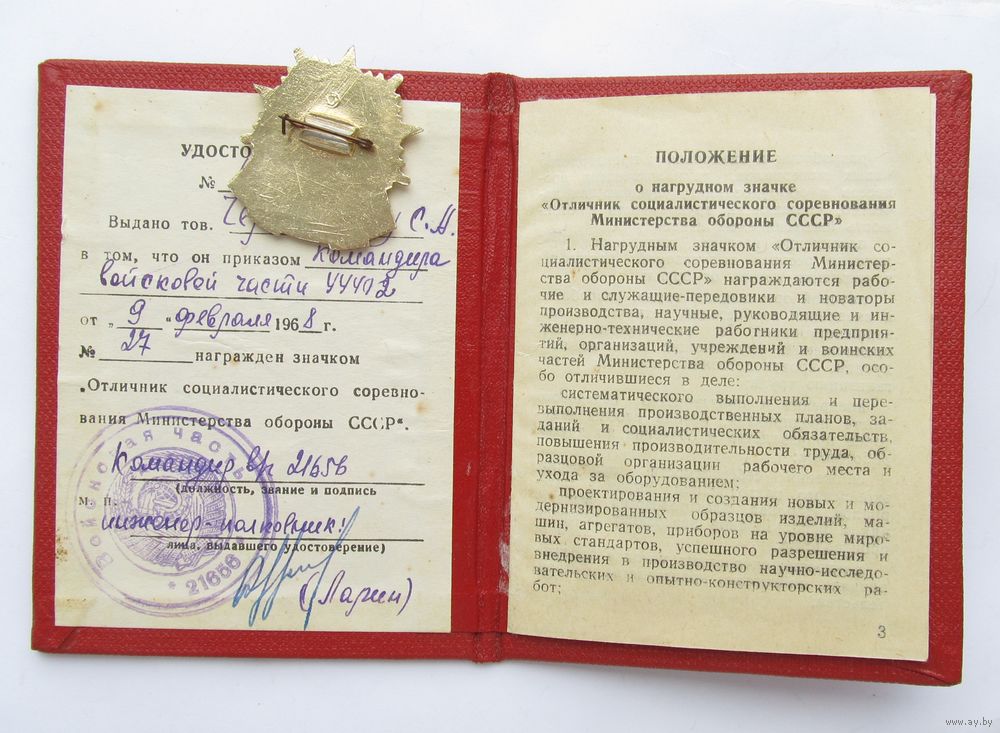 УДОСТО
№
Выдано тов. С.А.
в том, что он приказом Командира
войсковой части 44412
от „ 9 " февраля 1968 г.
№ 27 награжден значком
„Отличник социалистического соревно-
вания Министерства обороны СССР“.
Командир в/ч 21656
(должность, звание и подпись
М. П.
инженер-полковник:
лица, выдавшего удостоверение)
(Ларин)
Войсковая часть
* 21656 *
ПОЛОЖЕНИЕ
о нагрудном значке
«Отличник социалистического соревнования
Министерства обороны СССР»
1. Нагрудным значком «Отличник со-
циалистического соревнования Министер-
ства обороны СССР» награждаются рабо-
чие и служащие-передовики и новаторы
производства, научные, руководящие и ин-
женерно-технические работники предприя-
тий, организаций, учреждений и воинских
частей Министерства обороны СССР, осо-
бо отличившиеся в деле:
систематического выполнения и пере-
выполнения производственных планов, за-
даний и социалистических обязательств,
повышения производительности труда, об-
разцовой организации рабочего места и
ухода за оборудованием;
проектирования и создания новых и мо-
дернизированных образцов изделий, ма-
шин, агрегатов, приборов на уровне миро-
вых стандартов, успешного разрешения и
внедрения в производство научно-исследо-
вательских и опытно-конструкторских ра-
бот;
3
www.ay.by